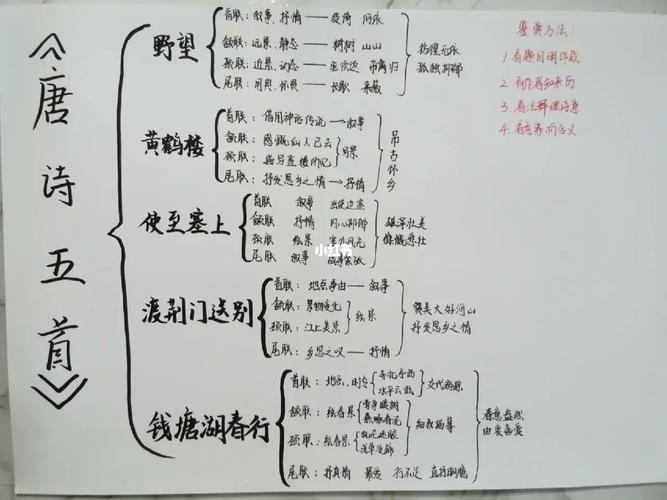 《唐诗五首》
野望
首联：叙事、抒情——徙倚 何依
颔联：远景、静态——树树 山山
颈联：近景、动态——牧人返 猎马归
尾联：用典、怀古——长歌 采薇
彷徨无依
孤独抑郁
黄鹤楼
首联：借用神话传说→叙事
颔联：感慨仙人已去
颈联：
写景
尾联：抒发思乡之情→抒情
吊古怀乡
使至塞上
首联 叙事 出使边塞
颔联 抒情 内心抑郁
颈联 绘景 塞外风光
尾联 叙事
雄浑壮美
慷慨悲壮
渡荆门送别
首联：地点事由——叙事
颔联：景物变化
颈联：江上美景
绘景
尾联：乡思之叹——抒情
赞美大好河山
抒发思乡之情
钱塘湖春行
首联：地点、时令
寺北亭西
水平云低
交代游踪
颔联：绘春景
莺争暖树
燕啄春泥
颈联：绘春景
乱花迷眼
浅草没蹄
细致描摹
尾联：抒真情 最爱 行不足 直抒胸臆
春意盎然
由衷喜爱
鉴赏方法：
1.看题目明体裁
2.看作者知来历
3.看注解理诗意
4.看意象析含义
小红书